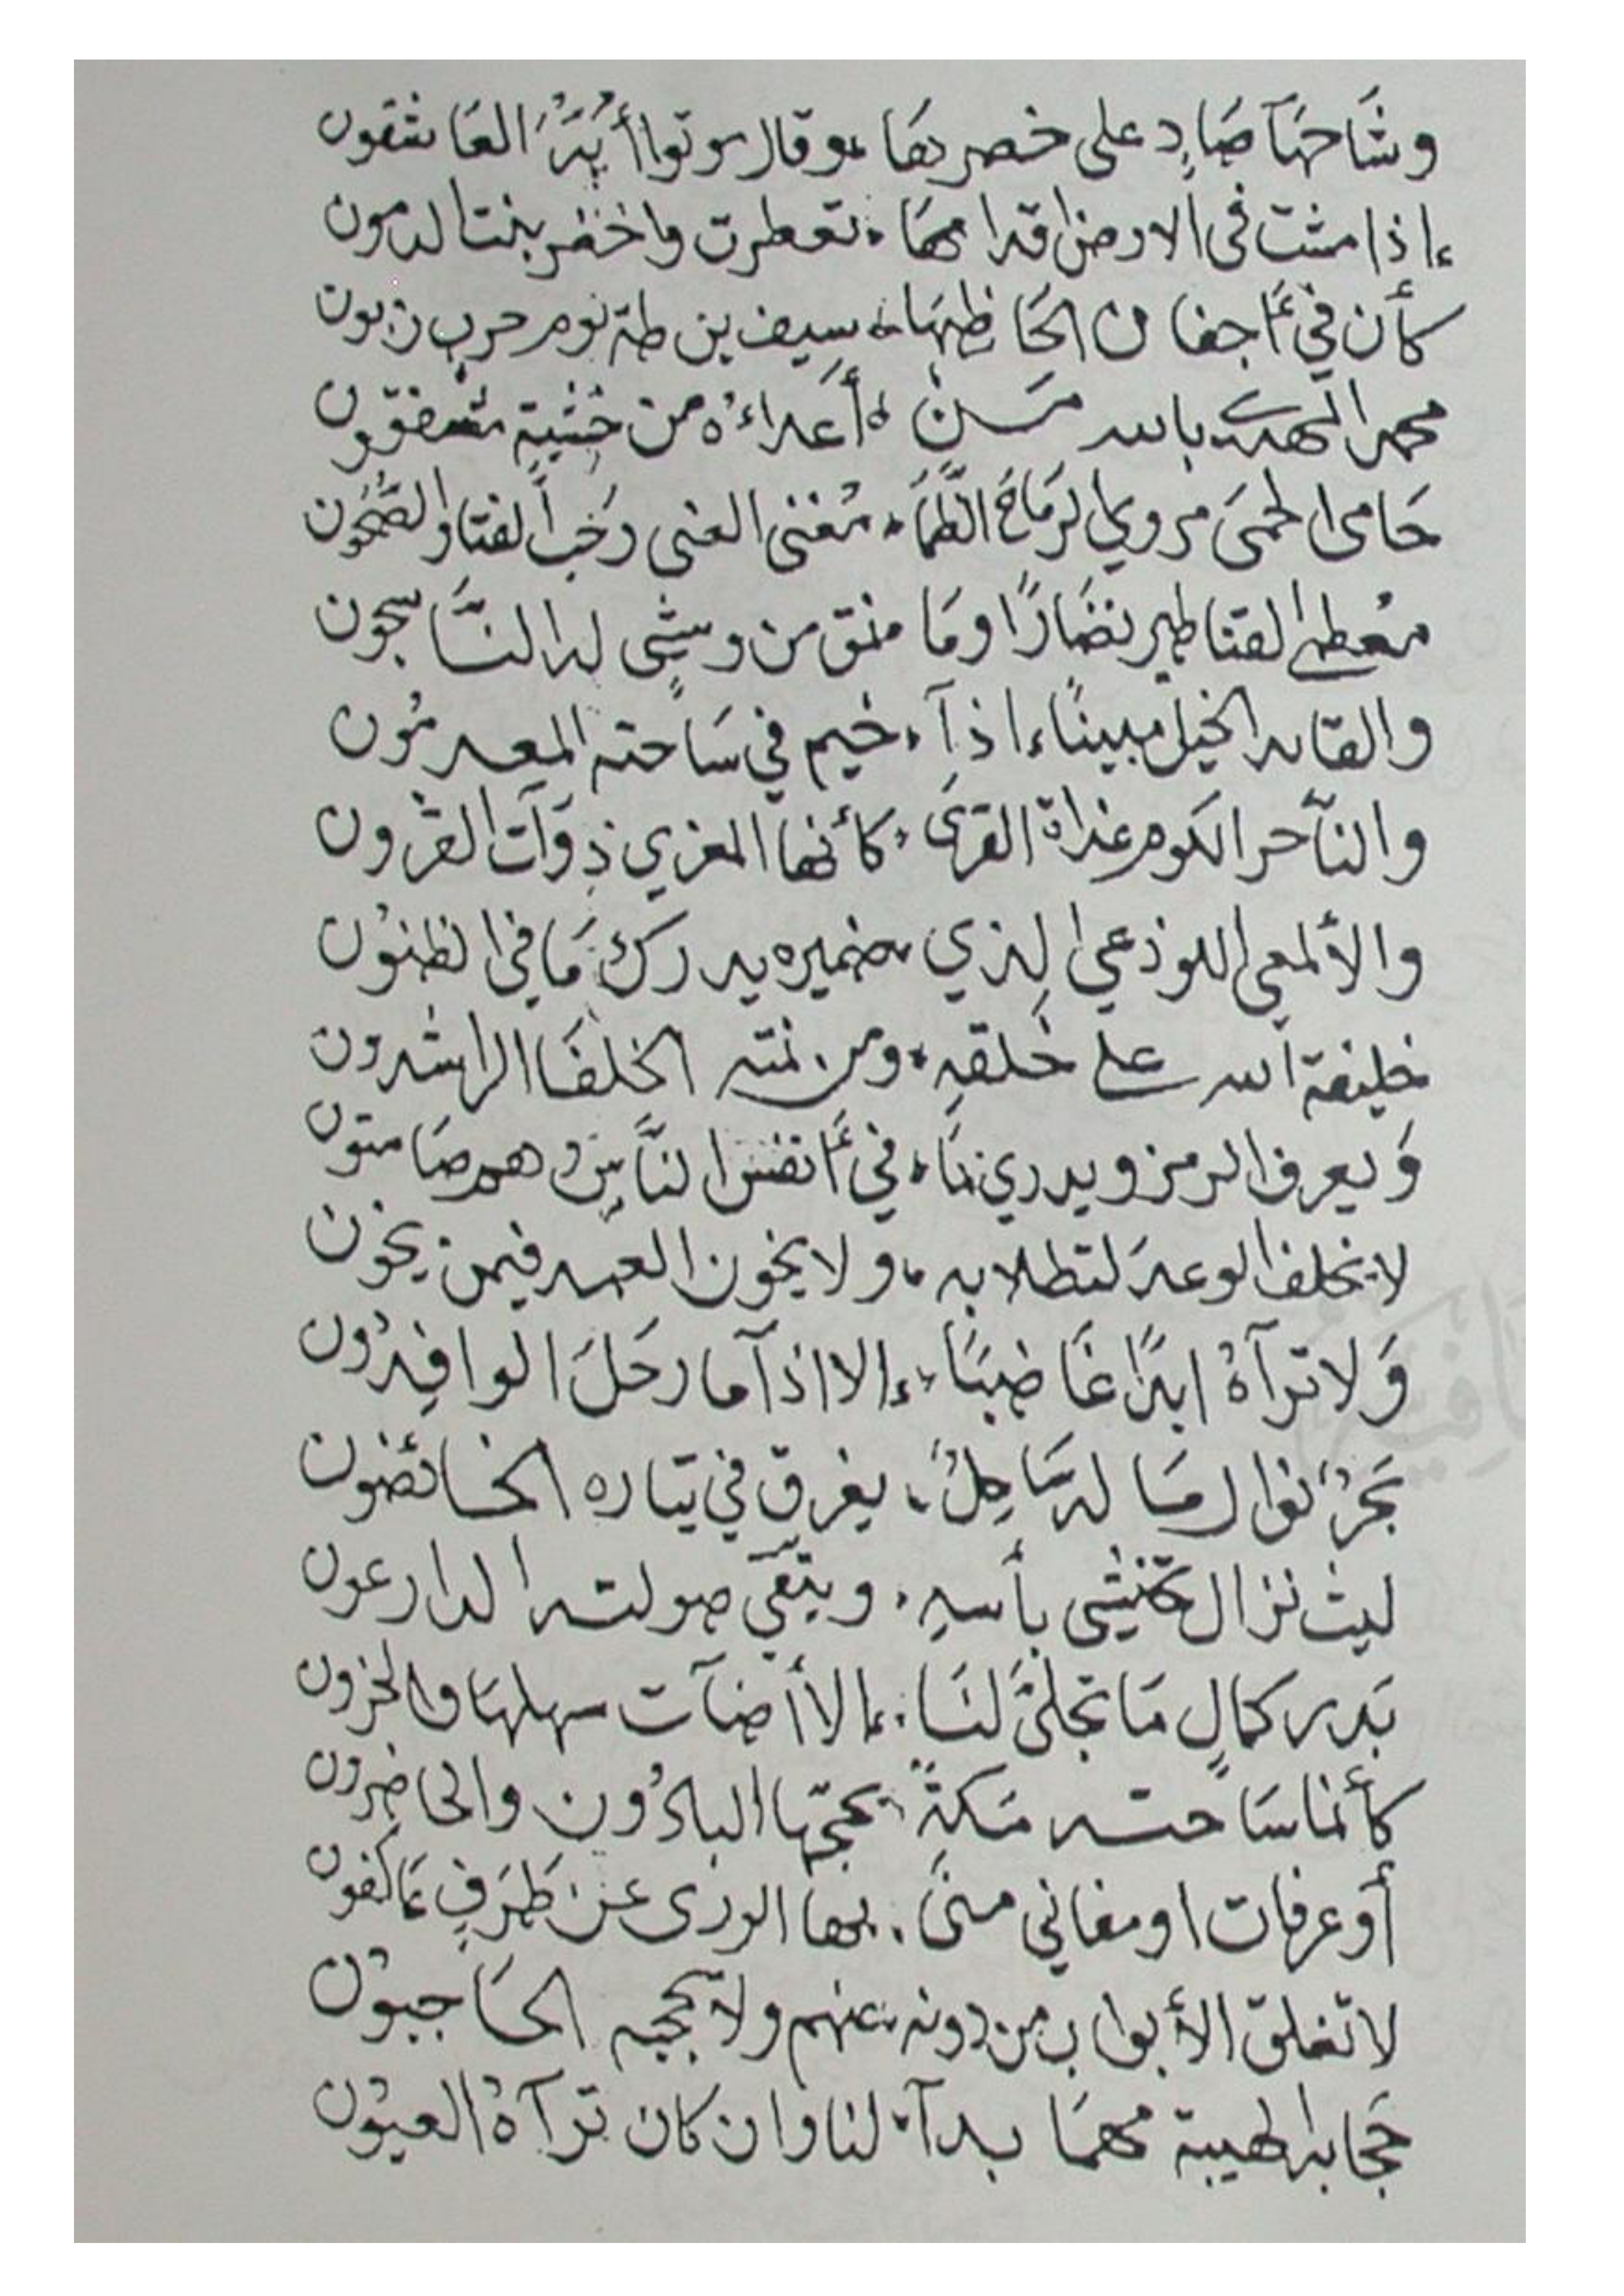 وشَاحهَا صَادٍ على خصرهَا ٠ وقال موتوا أيُّهَا العَاشقون
إذا مشت في الارض اقدامهَا ٠ تعطرت واخضر بنت الدمون
كأن في أجفان الحَاظِهَا ٠ سيف بن طه يوم حرب زبون
محمد المهدى بالله مَن ٠ أعداءُه من خشية مشفقون
حَامى الحمى مروي الرمَاح الظمَا ٠ مُغنى الغنى رَخب الفنا والصحُون
مُعطي القناطير نضَارًا ومَا منمق من وشي له النَّاسجون
والقائد الخيل مبينًا إذا ٠ خيم في سَاحته المعدمُون
والنَّاحر الكوم غداة القرى ٠ كأنها المغزي ذوَات القرون
والألمعي اللوذعي الذي ٠ ضميره يدرك مَا في الظنون
خليفة الله على خلقه ٠ ومن نمته الخلفَا الراشدون
وَيعرف الرمز ويدري بمَا ٠ في أنفس النَّاسِ وهم صَامتون
لا يخلف الوعد لتطلابه ٠ ولا يخون العهد فيمن يخون
وَلا ترآهُ ابدًا غَاضبًا ٠ إلا اذا مَا رحَلَ الوافِدُون
بَحرُ نوال مَا له سَاحِلٌ ٠ يغرق في تياره الخائضون
ليث نزال تختشى بأسه ٠ ويتقي صولته الدارعون
بَدر كمالٍ مَا تجلى لنَا ٠ إلا أضآت سهلهَا والحزون
كأنما سَاحته مَكةٌ ٠ يحجّها البادُون والحَاضِرون
أو عرفات او مغاني منى ٠ بها الورى عن طَرَفٍ عَاكفون
لا تغلق الأبواب من دونه عنهم ولا يحجبه الحَاجبون
حجَابه الهيبة مهمَا بدآ ٠ لنا وان كان ترآهُ العيون